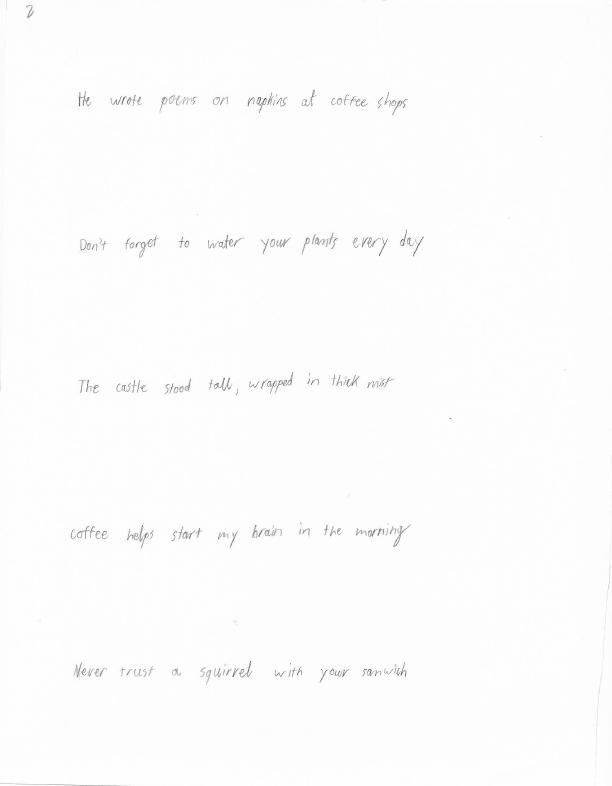 2
He wrote poems on napkins at coffee shops
Don't forget to water your plants every day
The castle stood tall, wrapped in thick mist
Coffee helps start my brain in the morning
Never trust a squirrel with your sanwich